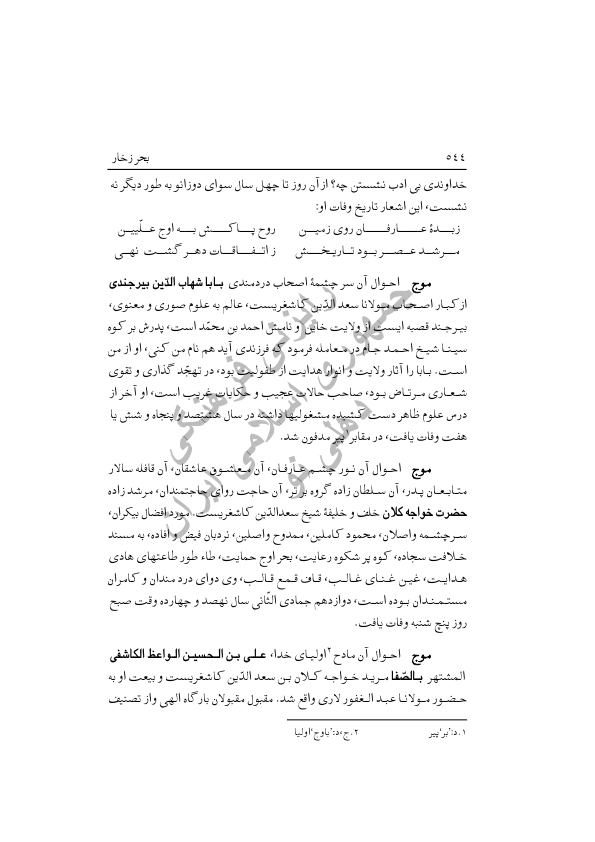 ۵۴۴ بحر زخار
خداوندی بی ادب نشستن چه؟ از آن روز تا چهل سال سوای دوزانو به طور دیگر نه
نشست، این اشعار تاریخ وفات او:
زبدهٔ عارفان روی زمین روح پاکش به اوج علّیین
مرشد عصر بود تاریخش ز اتفاقات دهر گشت نهی
موج احوال آن سر چشمهٔ اصحاب دردمندی بابا شهاب الدّین بیرجندی
از کبار اصحاب مولانا سعد الدّین کاشغریست، عالم به علوم صوری و معنوی،
بیرجند قصبه ایست از ولایت خاین و نامش احمد بن محمّد است، پدرش بر کوه
سینا شیخ احمد جام در معامله فرمود که فرزندی آید هم نام من کنی، او از من
است. بابا را آثار ولایت و انوار هدایت از طفولیت بود، در تهجّد گذاری و تقوی
شعاری مرتاض بود، صاحب حالات عجیب و حکایات غریب است، او آخر از
درس علوم ظاهر دست کشیده مشغولیها داشته در سال هشتصد و پنجاه و شش یا
هفت وفات یافت، در مقابر ۱پیر مدفون شد.
موج احوال آن نور چشم عارفان، آن معشوق عاشقان، آن قافله سالار
متابعان پدر، آن سلطان زاده گروه برتر، آن حاجت روای حاجتمندان، مرشد زاده
حضرت خواجه کلان خلف و خلیفهٔ شیخ سعدالدّین کاشغریست. مورد افضال بیکران،
سرچشمه واصلان، محمود کاملین، ممدوح واصلین، نردبان فیض و افاده، به مسند
خلافت سجاده، کوه پر شکوه رعایت، بحر اوج حمایت، طاء طور طاعتهای هادی
هدایت، غین غنای غالب، قاف قمع قالب، وی دوای درد مندان و کامران
مستمندان بوده است، دوازدهم جمادی الثّانی سال نهصد و چهارده وقت صبح
روز پنچ شنبه وفات یافت.
موج احوال آن مادح۲ اولیای خدا، علی بن الحسین الواعظ الکاشفی
المشتهر بالصّفا مرید خواجه کلان بن سعد الدّین کاشغریست و بیعت او به
حضور مولانا عبد الغفور لاری واقع شد. مقبول مقبولان بارگاه الهی واز تصنیف
۱. د: 'بر' پیر ۲. ج، د: 'باوج' اولیا
رایزنی فرهنگی
جمهوری اسلامی ایران
دهلی نو